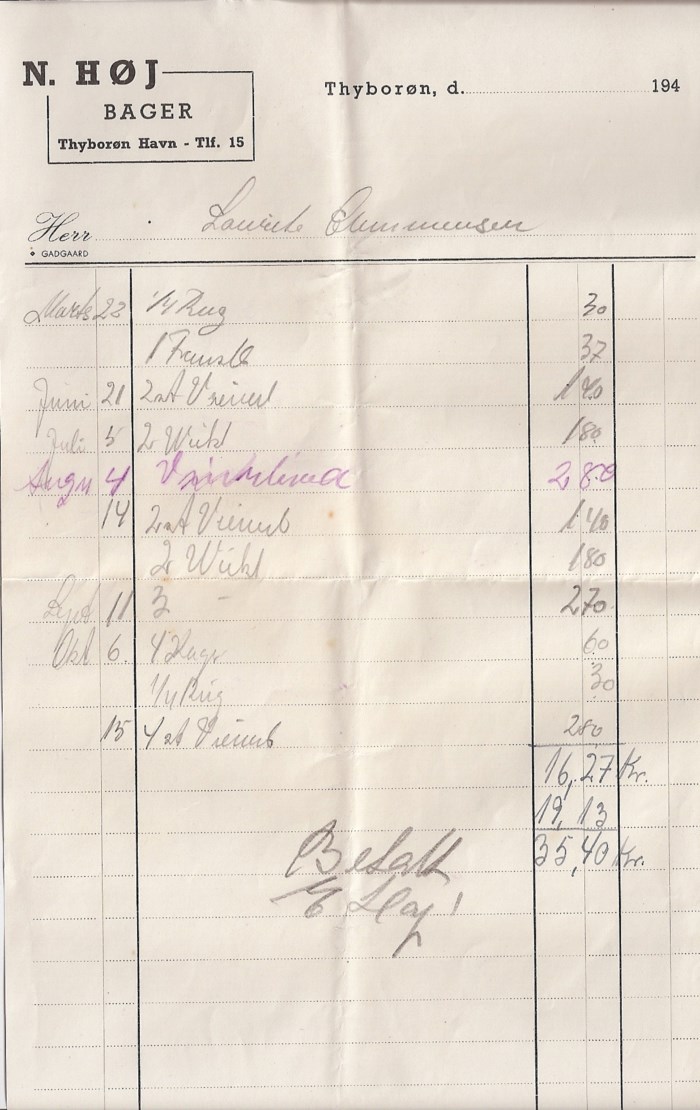 N. HØJ
BAGER
Thyborøn Havn - Tlf. 15
Thyborøn, d. 194
Herr Laurits Clemmensen
GADGAARD
Marts 22 1/4 Rug 30
1 Fransk 37
Juni 21 2 st Wienerb 140
Juli 5 2 180
Augu 4 280
14 2 st Wienerb 140
2 180
Sept 11 3 - 270
Okt 6. 4 60
1/4 Rug 30
15 4 st Wienerb 280
16,27 Kr.
19,13
35,40 Kr.
Betalt
E Høj!